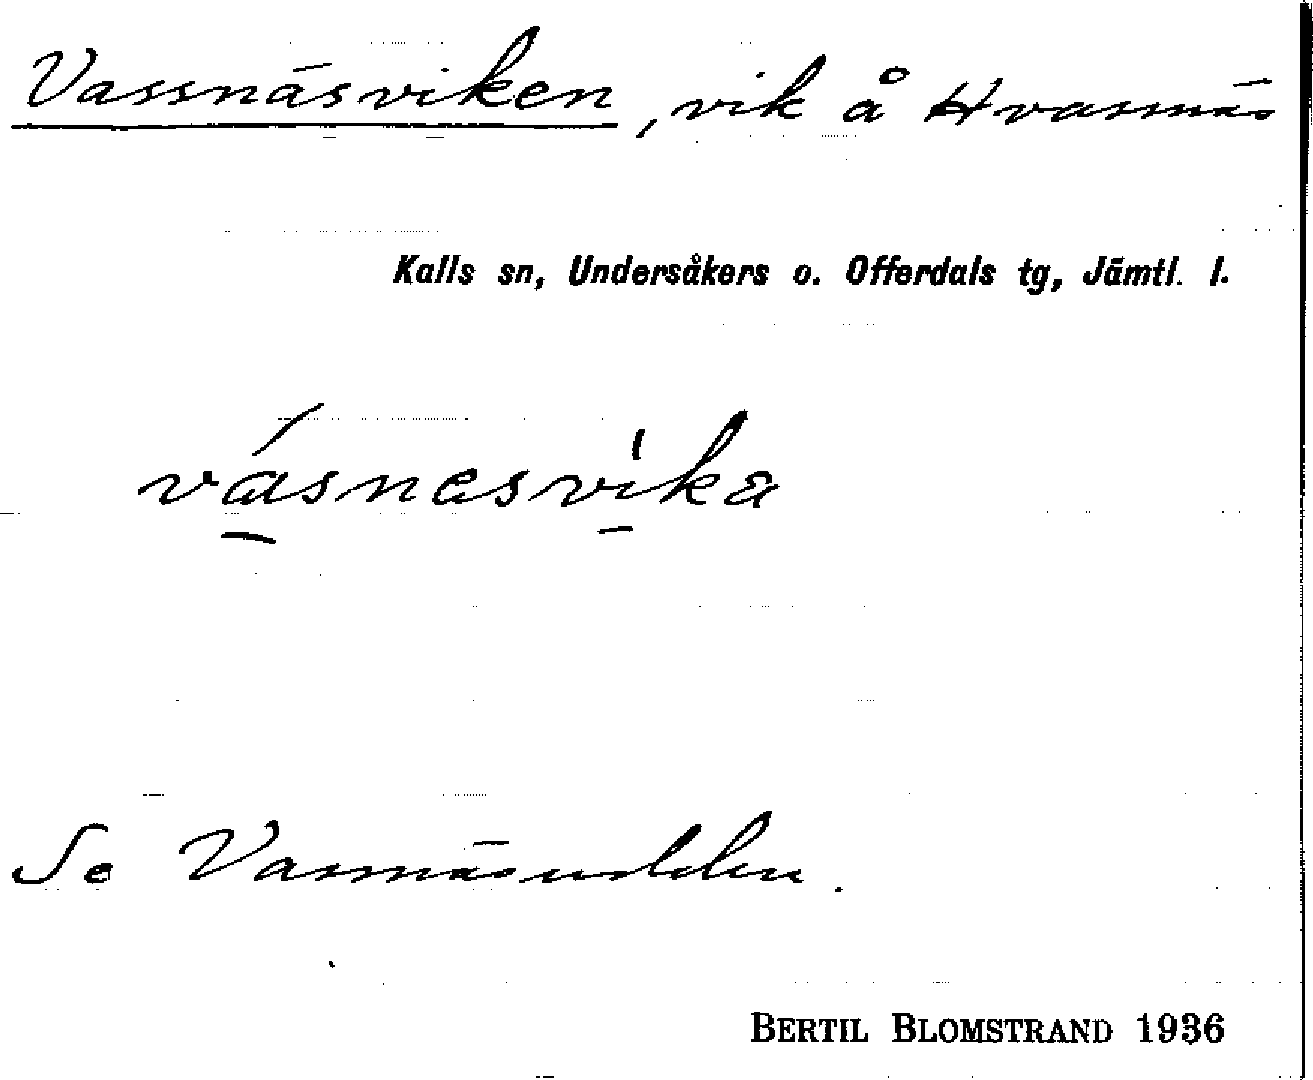 Vassnäsviken, vik å Hvasnäs
Kalls sn, Undersåkers o. Offerdals tg, Jämtl. l.
vásnesvika
Se Vasnäsudden.
BERTIL BLOMSTRAND 1936